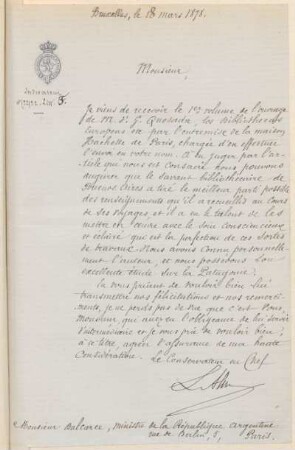 Bruxelles, le 18 mars 1878.
Monsieur,
Je viens de recevoir le 1er volume de l'ouvrage
de Mr. V. G. Quesada, les Bibliothèques
Européennes par l'entremise de la maison
Hachette de Paris, chargée d'en effectuer
l'envoi en votre nom. A en juger par l'ar-
ticle qui nous est consacré nous pouvons
augurer que le savant bibliothécaire de
Buenos Aires a tiré le meilleur parti possible
des renseignements qu'il a recueillis au cours
de ses voyages, et il a eu le talent de les
mettre en œuvre avec le soin consciencieux
et
qui est la perfection de ces sortes
de travaux. Nous avons connu personnelle-
ment l'auteur, et nous possédons son
excellente étude sur la Patagonie.
En vous priant de vouloir bien lui
transmettre nos félicitations et nos remercî-
ments, je ne perds pas de vue que c'est vous
Monsieur, qui avez eu l'obligeance de lui servir
d'intermédiaire et je vous prie de vouloir bien,
à ce titre, agréer l'assurance de ma haute
considération.
Le Conservateur en Chef
Monsieur Balcarce, ministre de la République argentine
rue de Berlin, 5, Paris.